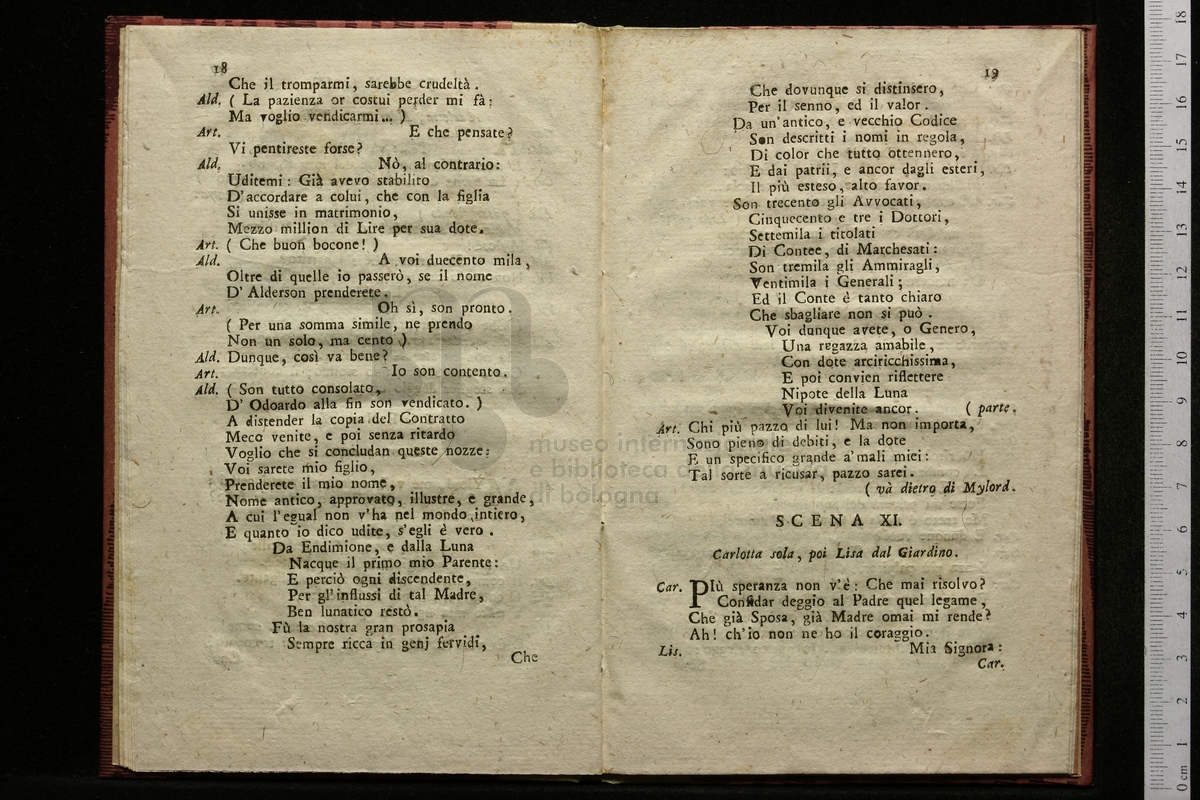 18
Che il tromparmi, sarebbe crudeltà.
Ald. ( La pazienza or costui perder mi fà:
Ma voglio vendicarmi... )
Art. E che pensate?
Vi pentireste forse?
Ald. Nò, al contrario:
Uditemi: Già avevo stabilito
D'accordare a colui, che con la figlia
Si unisse in matrimonio,
Mezzo million di Lire per sua dote.
Art. ( Che buon bocone! )
Ald. A voi duecento mila,
Oltre di quelle io passerò, se il nome
D' Alderson prenderete.
Art. Oh sì, son pronto.
( Per una somma simile, ne prendo
Non un solo, ma cento )
Ald. Dunque, così va bene?
Art. Io son contento.
Ald. ( Son tutto consolato,
D' Odoardo alla fin son vendicato. )
A distender la copia del Contratto
Meco venite, e poi senza ritardo
Voglio che si concludan queste nozze:
Voi sarete mio figlio,
Prenderete il mio nome,
Nome antico, approvato, illustre, e grande,
A cui l'egual non v'ha nel mondo intiero,
E quanto io dico udite, s'egli è vero.
Da Endimione, e dalla Luna
Nacque il primo mio Parente:
E perciò ogni discendente,
Per gl'influssi di tal Madre,
Ben lunatico restò.
Fù la nostra gran prosapia
Sempre ricca in genj fervidi,
Che
19
Che dovunque si distinsero,
Per il senno, ed il valor.
Da un'antico, e vecchio Codice
Son descritti i nomi in regola,
Di color che tutto ottennero,
E dai patrii, e ancor dagli esteri,
Il più esteso, alto favor.
Son trecento gli Avvocati,
Cinquecento e tre i Dottori,
Settemila i titolati
Di Contee, di Marchesati:
Son tremila gli Ammiragli,
Ventimila i Generali;
Ed il Conte è tanto chiaro
Che sbagliare non si può.
Voi dunque avete, o Genero,
Una regazza amabile,
Con dote arciricchissima,
E poi convien riflettere
Nipote della Luna
Voi divenite ancor. ( parte.
Art. Chi più pazzo di lui! Ma non importa,
Sono pieno di debiti, e la dote
E un specifico grande a' mali miei:
Tal sorte a ricusar, pazzo sarei.
( và dietro di Mylord.
SCENA XI.
Carlotta sola, poi Lisa dal Giardino.
Car. PIù speranza non v'è: Che mai risolvo?
Confidar deggio al Padre quel legame,
Che già Sposa, già Madre omai mi rende?
Ah! ch'io non ne ho il coraggio.
Lis. Mia Signora:
Car.
museo intern
e biblioteca d
di bologna
0 cm 1 2 3 4 5 6 7 8 9 10 11 12 13 14 15 16 17 18